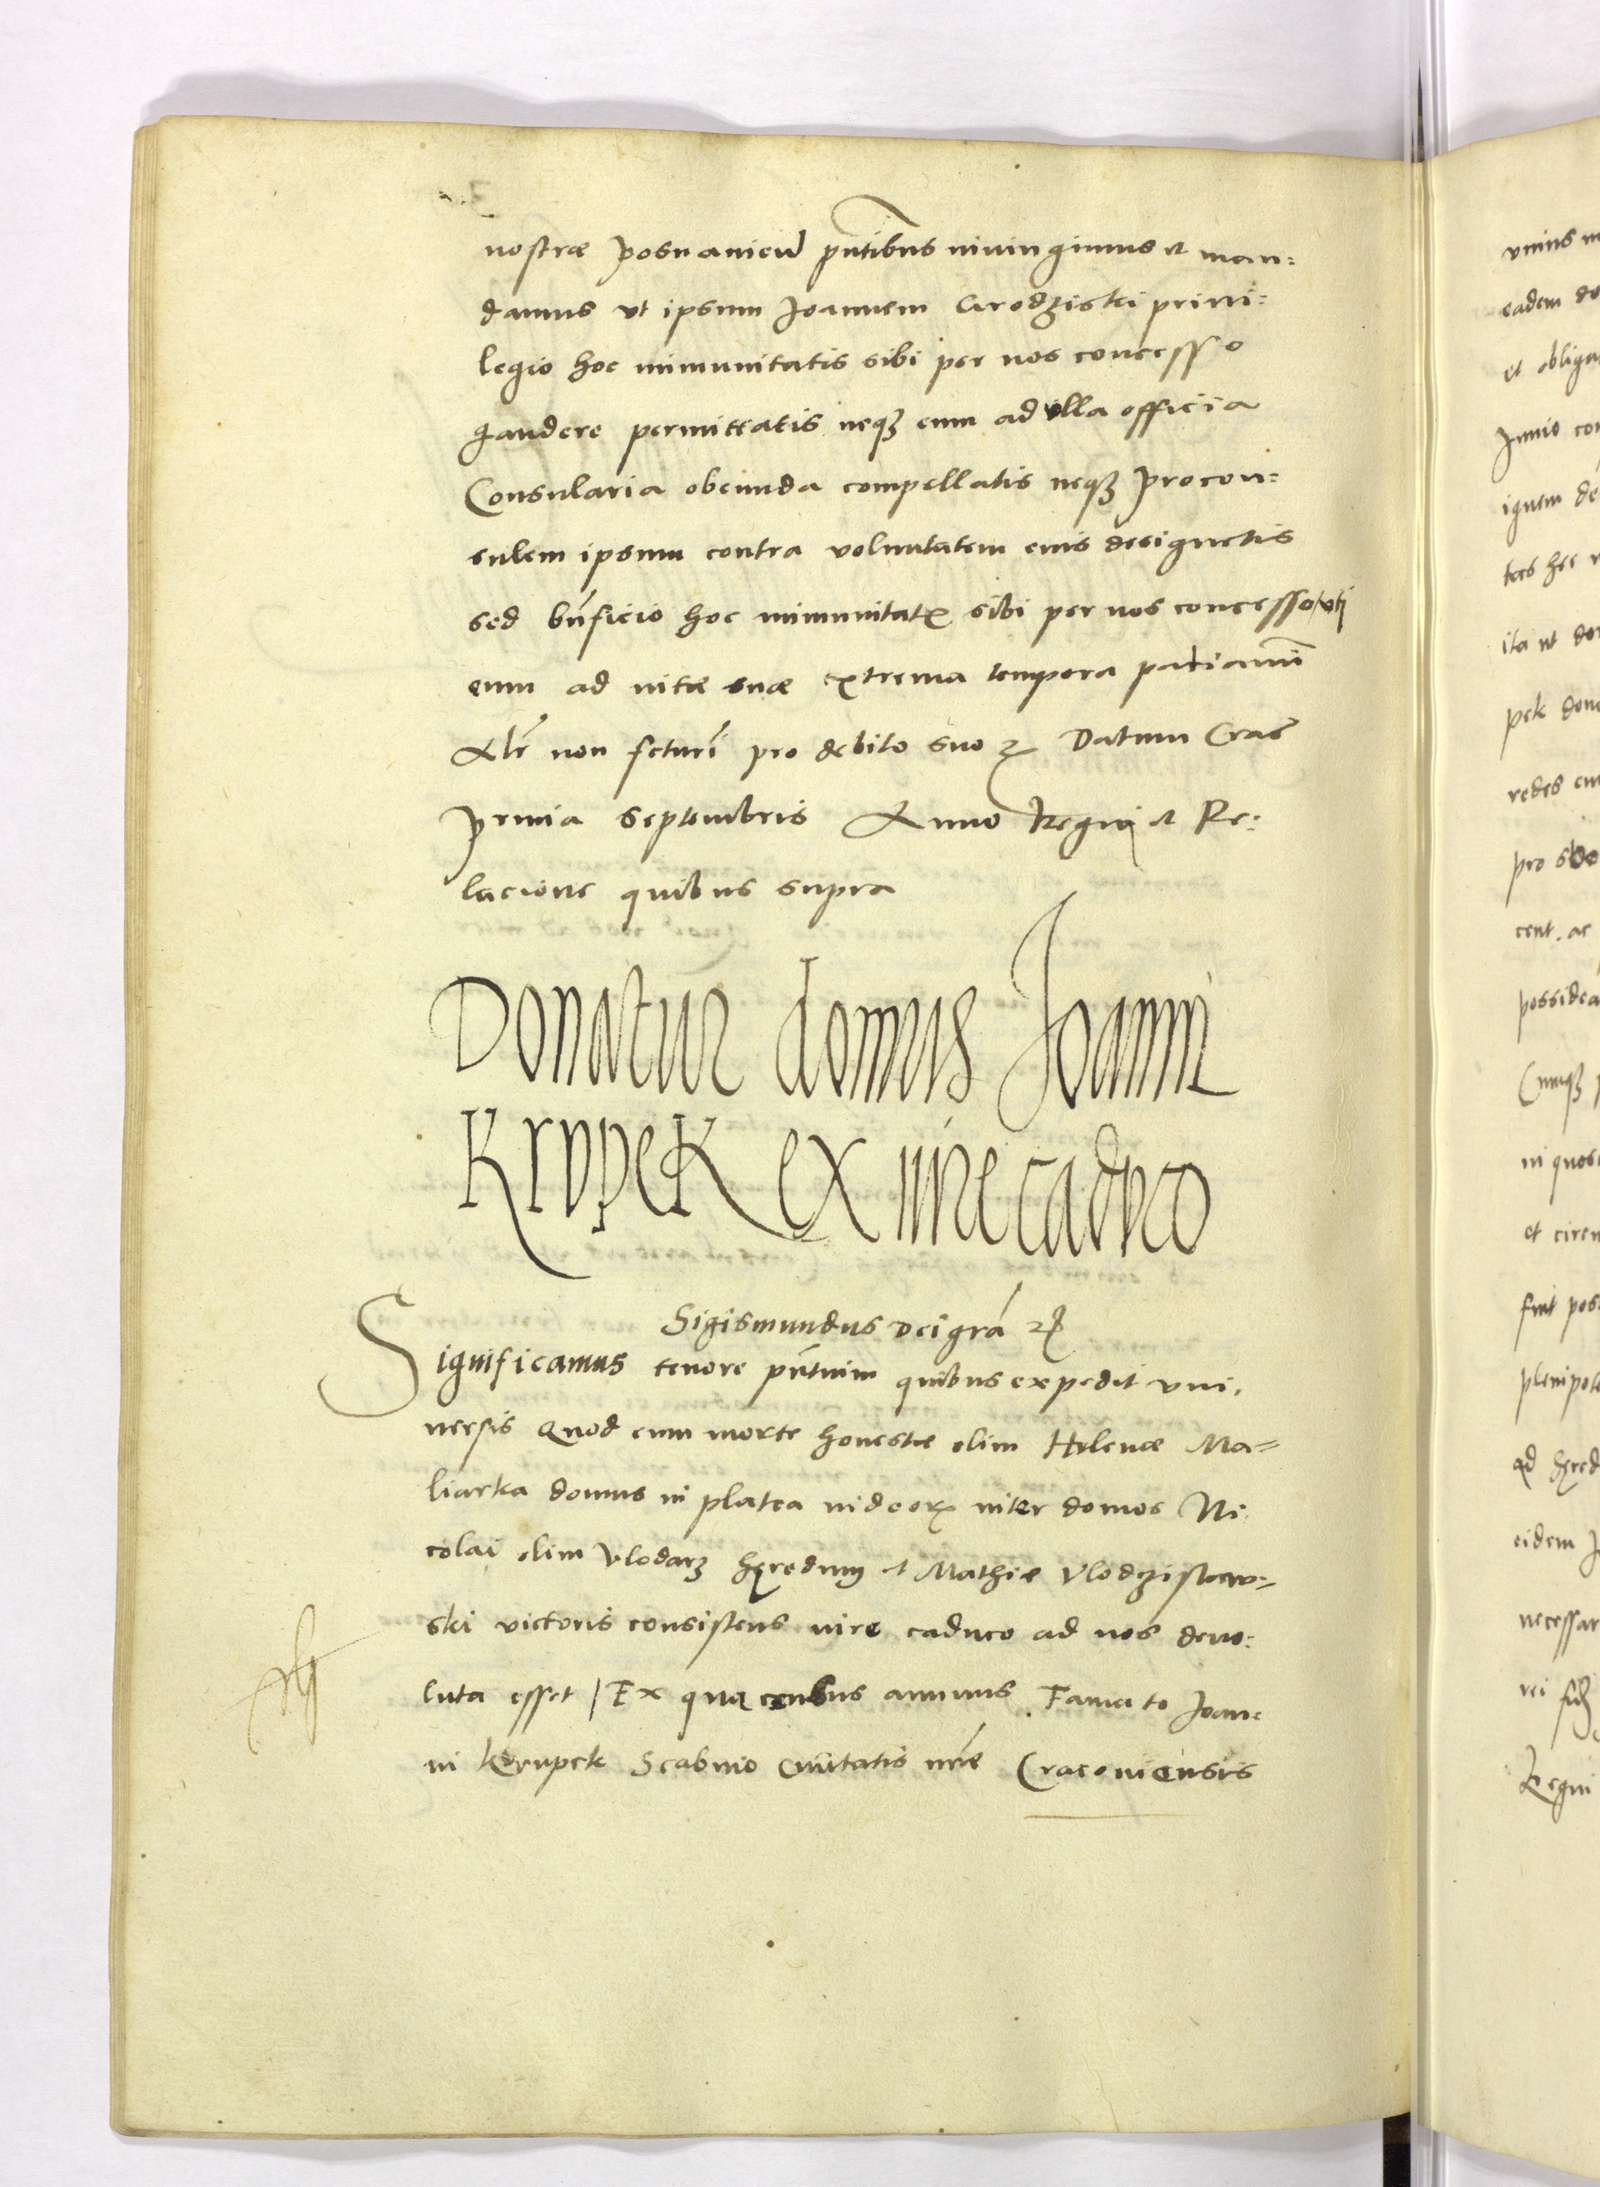 nostræ Posnanieñ pñtibus iniungimus et man:
damus ut ipsum Joannem Grodziski privi:
legio hoc immunitatis sibi per nos concesso
gaudere permittatis neqꝫ eum ad ulla officia
Consularia obeunda compellatis neqꝫ Procon:
sulem ipsum contra voluntatem eius designetis
sed bñficio hoc immunitatꝭ sibi per nos concesso uti
eum ad vitæ suæ extrema tempora patiamī
Alr̃ non facturī pro debito suo ꝛc Datum Crac̃
Prima Septembris Anno Regni et Re:
lacione quibus supra
Donatur domus Joanni
Krupek ex iure caduco
Sigismundus Dei grã ꝛc
Significamus tenore pñtium quibus expedit uni,
uersis Quod cum morte honestæ olim Helenæ Ma=
liarka domus in platea iudeorꝭ inter domos Ni
colai olim Vlodarz hęredum et Mathiæ Vlodzislaw=
ski victoris consistens iure caduco ad nos deuo:
luta esset / Ex qua census annuus Famato Joan:
ni Krupek Scabino Ciuitatis nr̃æ Cracouiensis
uti
unius
eadem
et
Junio
ignem
ita ut
pek
redes
pro
cent. ac
Cumqꝫ
in
et
eidem
Regni